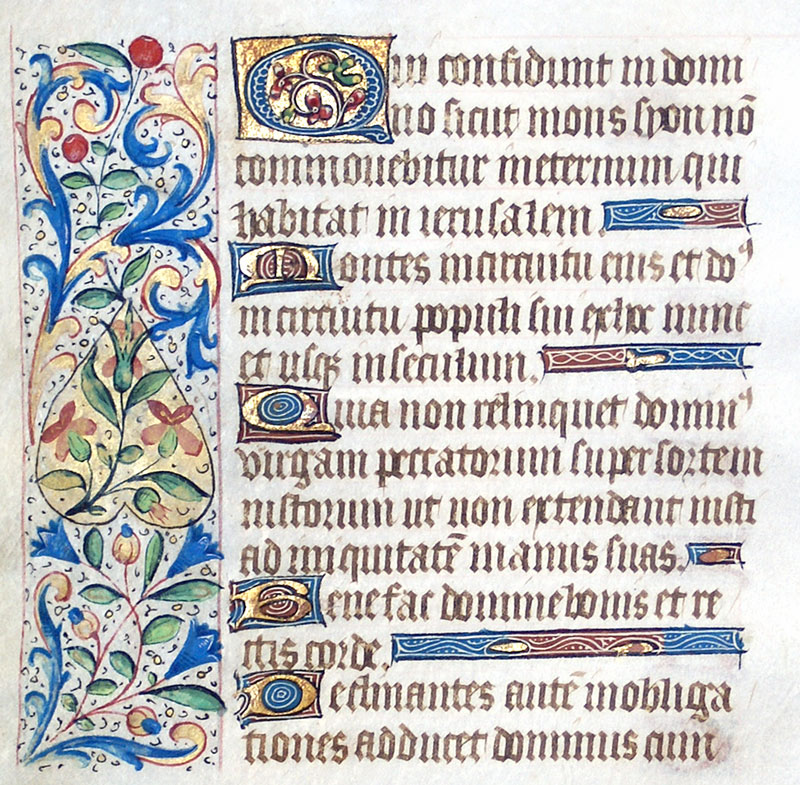 Qui confidunt in domi
no sicut mons syon nō
commouebitur ineternum qui
habitat in ierusalem.
Montes incircuitu eius et doꝰ
incircuitu populi sui ex hoc nunc
et usqꝫ inseculum.
Quia non relinquet dominꝰ
virgam peccatorum super sortem
iustorum ut non extendant iusti
ad iniquitatē manus suas.
Bene fac domine bonis et re
ctis corde.
Declinantes autē inobliga
tiones adducet dominus cum